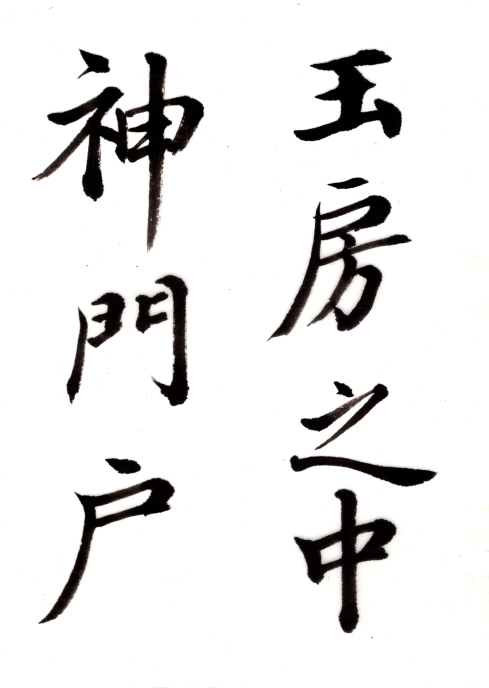 玉房之中
神門户